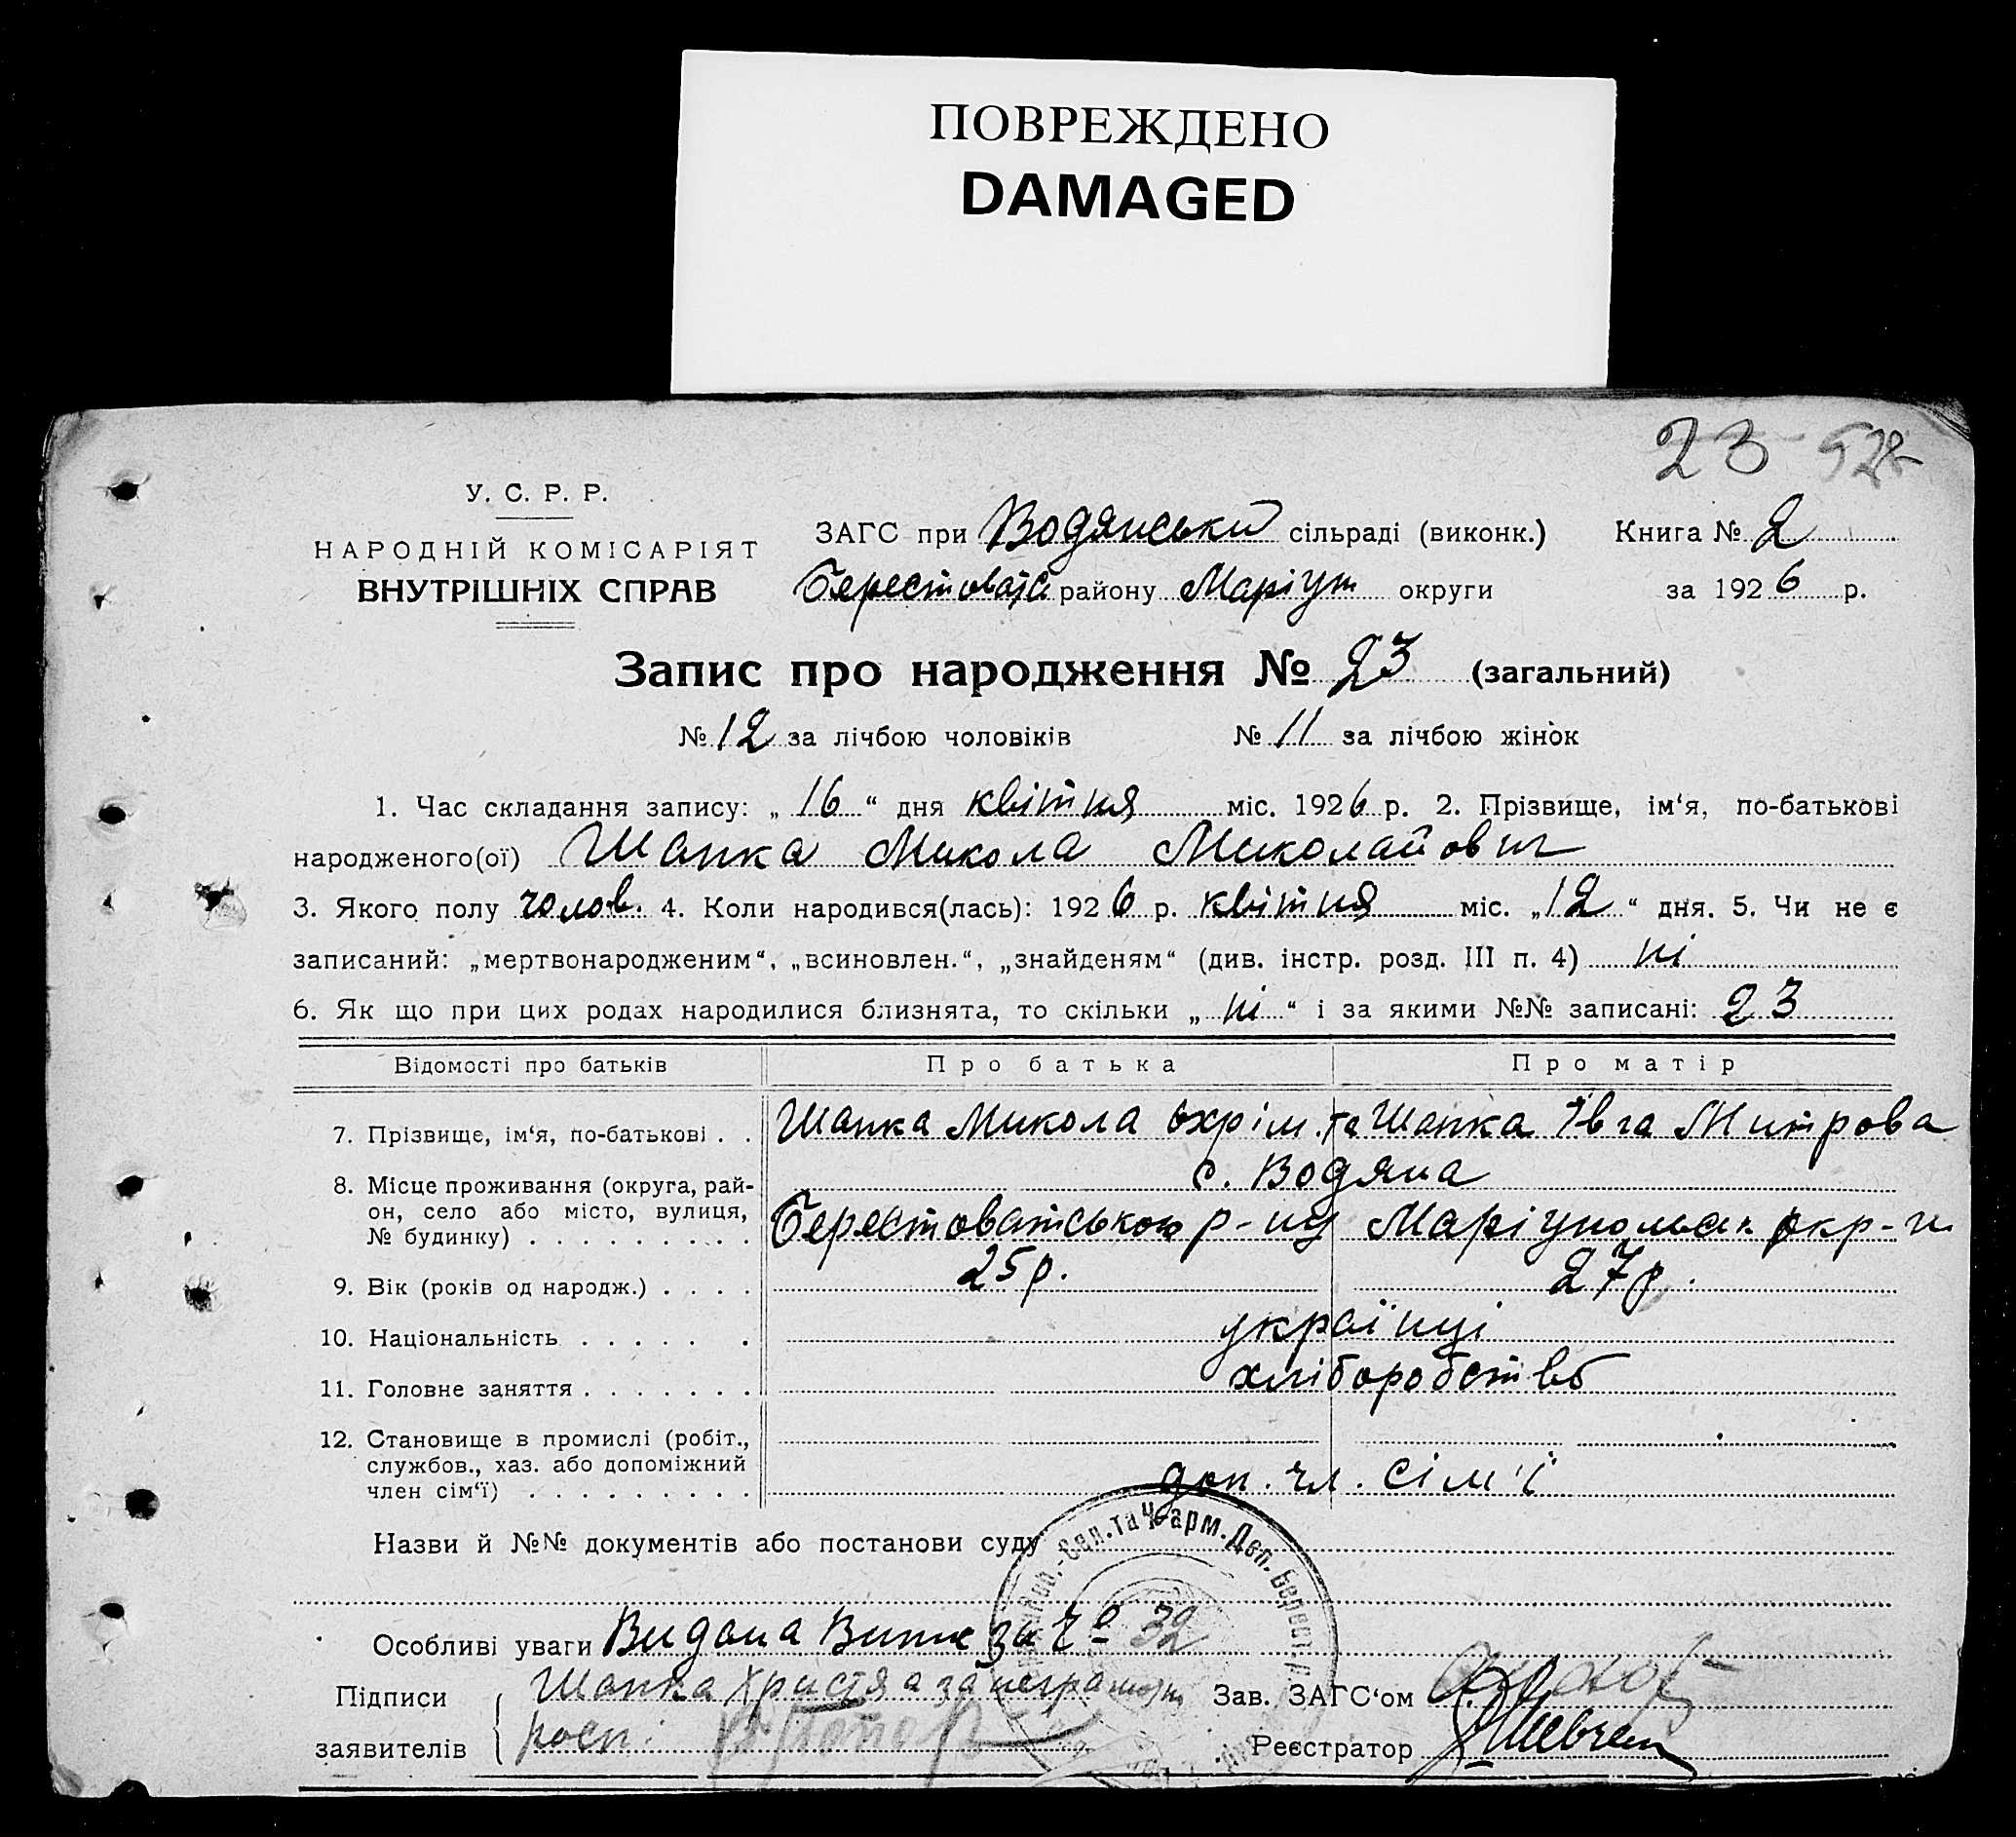 ПОВРЕЖДЕНО
DAMAGED
23 528
У. С. Р. Р.
НАРОДНІЙ КОМІСАРІЯТ
ВНУТРІШНІХ СПРАВ
ЗАГС при Водянськи сільраді (виконк.) Книга № 2
району Маріуп округи за 1926 р.
Запис про народження № 23 (загальний)
№ 12 за лічбою чоловіків № 11 за лічбою жінок
1. Час складання запису: „16“ дня квітня міс. 1926 р. 2. Прізвище, ім‘я, по-батькові
народженого(ої) Шапка Микола Миколайович
3. Якого полу чолов. 4. Коли народився(лась): 1926 р. квітня міс. „12“ дня. 5. Чи не є
записаний: „мертвонародженим“, „всиновлен.“, „знайденям“ (див. інстр. розд. III п. 4) ні
6. Як що при цих родах народилися близнята, то скільки „ні“ і за якими №№ записані: 23
Відомості про батьків Про батька Про матір
7. Прізвище, ім‘я, по-батькові . . Шапка Микола Охрім. та Шапка Івга Митрова
8. Місце проживання (округа, рай-
он, село або місто, вулиця,
№ будинку) . . . . . . . . .
с. Водяна
Берестоватського р-ну Маріупольск. окр-и
9. Вік (років од народж.) . . . . 25 р. 27 р.
10. Національність . . . . . . українці
11. Головне заняття . . . . . . . хліборобство
12. Становище в промислі (робіт.,
службов., хаз. або допоміжний
член сім‘ї) . . . . . . . . . доп. чл. сім'ї
Назви й №№ документів або постанови суду
Сан. та Фарм. Деп. Берест.
Особливі уваги Видана Випис за № 32
Підписи
заявителів
Шапка Христя а за неграмотн
росп:
Зав. ЗАГС‘ом
Реєстратор Шевчен